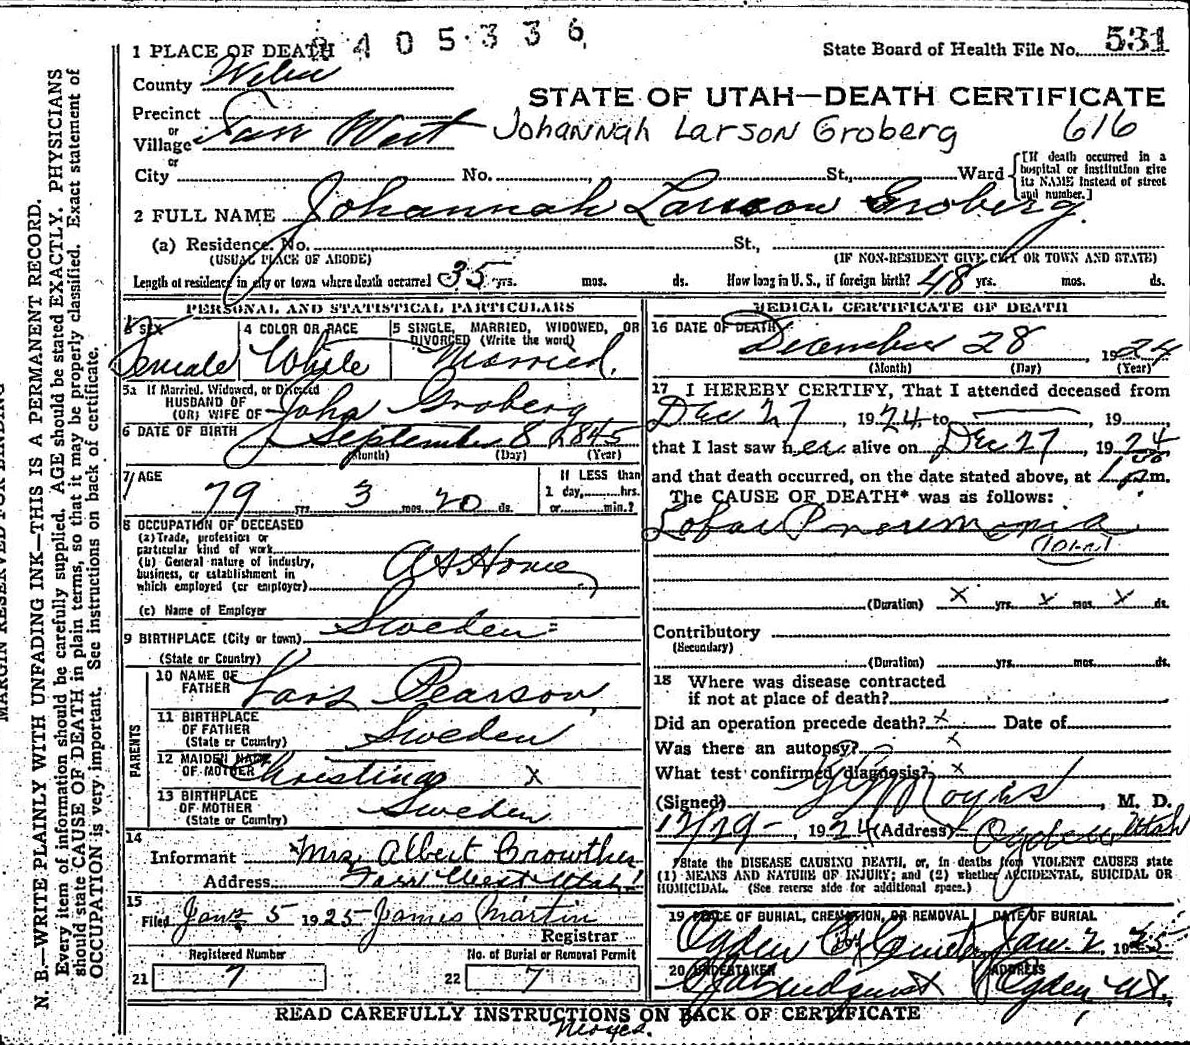 2405336
1 PLACE OF DEATH
State Board of Health File No. 531
County Weber
STATE OF UTAH—DEATH CERTIFICATE
Precinct
or
Village Farr West
Johannah Larson Groberg 616
or
City No. , St., Ward
[If death occurred in a hospital or institution give its NAME instead of street and number.]
2 FULL NAME Johannah Larson Groberg.
(a) Residence. No. St.,
(USUAL PLACE OF ABODE) (IF NON-RESIDENT GIVE CITY OR TOWN AND STATE)
Length of residence in city or town where death occurred 35 yrs. mos. ds. How long in U. S., if foreign birth? 48 yrs. mos. ds.
PERSONAL AND STATISTICAL PARTICULARS
3 SEX
Female
4 COLOR OR RACE
White
5 SINGLE, MARRIED, WIDOWED, OR DIVORCED (Write the word)
Married.
5a If Married, Widowed, or Divorced
HUSBAND OF
(OR) WIFE OF John Groberg
6 DATE OF BIRTH September 8 1845
(Month) (Day) (Year)
7 AGE
79 yrs. 3 mos. 20 ds.
If LESS than
1 day, hrs.
or min.?
8 OCCUPATION OF DECEASED
(a) Trade, profession or
particular kind of work
(b) General nature of industry,
business, or establishment in
which employed (or employer)
At Home
(c) Name of Employer
9 BIRTHPLACE (City or town) Sweden
(State or Country)
PARENTS
10 NAME OF
FATHER Lars Pearson
11 BIRTHPLACE
OF FATHER
(State or Country) Sweden
12 MAIDEN NAME
OF MOTHER Christina X
13 BIRTHPLACE
OF MOTHER
(State or Country) Sweden
14
Informant Mrs Albert Crowther
Address Farr West Utah
15
Filed Jan 5 1925 James Martin
Registrar
Registered Number
21 7
No. of Burial or Removal Permit
22 7
MEDICAL CERTIFICATE OF DEATH
16 DATE OF DEATH
December 28, 1924
(Month) (Day) (Year)
17 I HEREBY CERTIFY, That I attended deceased from
Dec 27, 1924, to , 19
that I last saw her alive on Dec 27, 1924
and that death occurred, on the date stated above, at 1 p.m.
The CAUSE OF DEATH* was as follows:
Lobar Pneumonia
(Duration) x yrs. x mos. x ds.
Contributory
(Secondary)
(Duration) yrs. mos. ds.
18 Where was disease contracted
if not at place of death?
Did an operation precede death? x Date of
Was there an autopsy? x
What test confirmed diagnosis? x
(Signed) Moyes, M. D.
12/29-, 1924 (Address) Ogden Utah
*State the DISEASE CAUSING DEATH, or, in deaths from VIOLENT CAUSES state
(1) MEANS AND NATURE OF INJURY; and (2) whether ACCIDENTAL, SUICIDAL OR
HOMICIDAL. (See reverse side for additional space.)
19 PLACE OF BURIAL, CREMATION, OR REMOVAL DATE OF BURIAL
Ogden City Cemetery Jan. 2, 1925
20 UNDERTAKER ADDRESS
Lindquist Ogden Ut.
READ CAREFULLY INSTRUCTIONS ON BACK OF CERTIFICATE
Moyes.
MARGIN RESERVED FOR BINDING
N. B.—WRITE PLAINLY WITH UNFADING INK—THIS IS A PERMANENT RECORD.
Every item of information should be carefully supplied. AGE should be stated EXACTLY. PHYSICIANS
should state CAUSE OF DEATH in plain terms, so that it may be properly classified. Exact statement of
OCCUPATION is very important. See instructions on back of certificate.